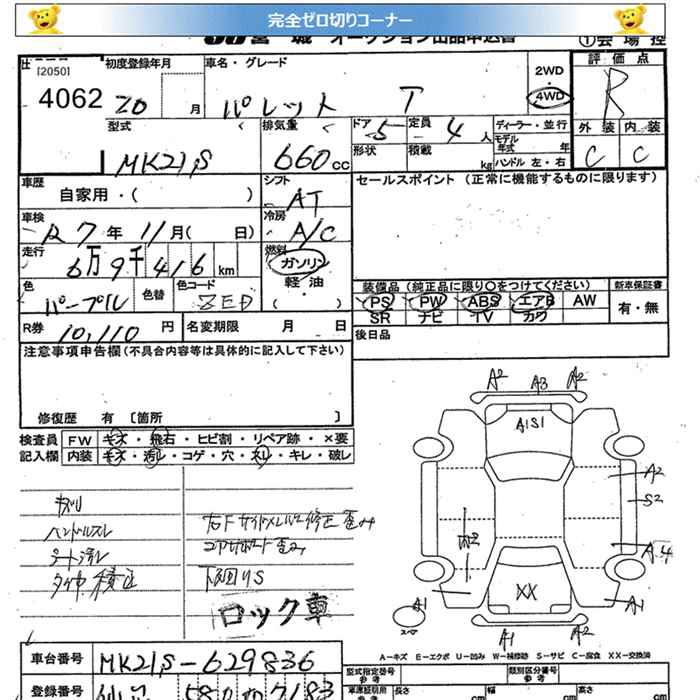 完全ゼロ切りコーナー
JU 宮 城 オークション出品申込書 ①会 場 控
[2050] 初度登録年月 車名・グレード 2WD・4WD 評価点
4062 20 月 パレット T R
型式 排気量 ドア 5 定員 4 人 ディーラー・並行 外装 内装
MK21S 660cc 形状 積載 kg モデル年式 年 C C
ハンドル 左・右
車歴 シフト セールスポイント (正常に機能するものに限ります)
自家用・( ) AT
車検 冷房
R7年 11月( 日) A/C
走行 燃料
6万9千416km ガソリン
色 色替 色コード 軽油 装備品 (純正品に限り○をつけてください) 新車保証書
パープル ZED ( ) PS PW ABS エアB AW 有・無
SR ナビ TV カワ
R券 10,110 円 名変期限 月 日 後日品
注意事項申告欄(不具合内容等は具体的に記入して下さい)
修復歴 有 〔箇所 〕
検査員 FW キズ・飛石・ヒビ割・リペア跡・×要
記入欄 内装 キズ・汚レ・コゲ・穴・スレ・キレ・破レ
A2 A3 A2
A1S1
A2
S2
A4
A1 XX A1
スペア
A1 A2
ハンドルスレ
シート汚レ
コアサポート歪み
下回りS
ロック車
A-キズ E-エクボ U-凹み W-補修跡 S-サビ C-腐食 XX-交換済
車台番号 MK21S-629836 型式指定番号 類別区分番号
登録番号 580 7183 長さ cm 幅 cm 高さ cm